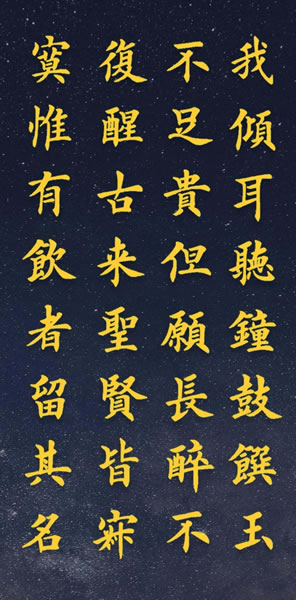 我傾耳聽鐘鼓饌玉
不足貴但願長醉不
復醒古来聖賢皆寂
寞惟有飲者留其名